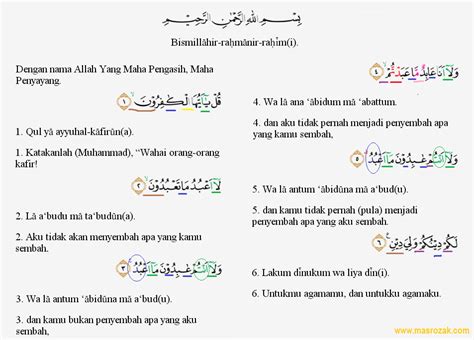 بِسْمِ اللهِ الرَّحْمٰنِ الرَّحِيْمِ
Bismillāhir-raḥmānir-raḥīm(i).
Dengan nama Allah Yang Maha Pengasih, Maha
Penyayang.
قُلْ يٰٓاَيُّهَا الْكٰفِرُوْنَۙ ١
1. Qul yā ayyuhal-kāfirūn(a).
1. Katakanlah (Muhammad), “Wahai orang-orang
kafir!
لَآ اَعْبُدُ مَا تَعْبُدُوْنَۙ ٢
2. Lā a‘budu mā ta‘budūn(a).
2. Aku tidak akan menyembah apa yang kamu
sembah.
وَلَآ اَنْتُمْ عٰبِدُوْنَ مَآ اَعْبُدُۚ ٣
3. Wa lā antum ‘ābidūna mā a‘bud(u).
3. dan kamu bukan penyembah apa yang aku
sembah,
وَلَآ اَنَا۠ عَابِدٌ مَّا عَبَدْتُّمْۙ ٤
4. Wa lā ana ‘ābidum mā ‘abattum.
4. dan aku tidak pernah menjadi penyembah apa
yang kamu sembah,
وَلَآ اَنْتُمْ عٰبِدُوْنَ مَآ اَعْبُدُۗ ٥
5. Wa lā antum ‘ābidūna mā a‘bud(u).
5. dan kamu tidak pernah (pula) menjadi
penyembah apa yang aku sembah.
لَكُمْ دِيْنُكُمْ وَلِيَ دِيْنِ ٦
6. Lakum dīnukum wa liya dīn(i).
6. Untukmu agamamu, dan untukku agamaku.
www.masrozak.com